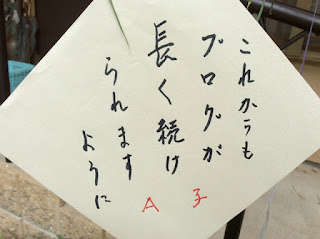 これからも
ブログが
長く続け
られます
ように
A子